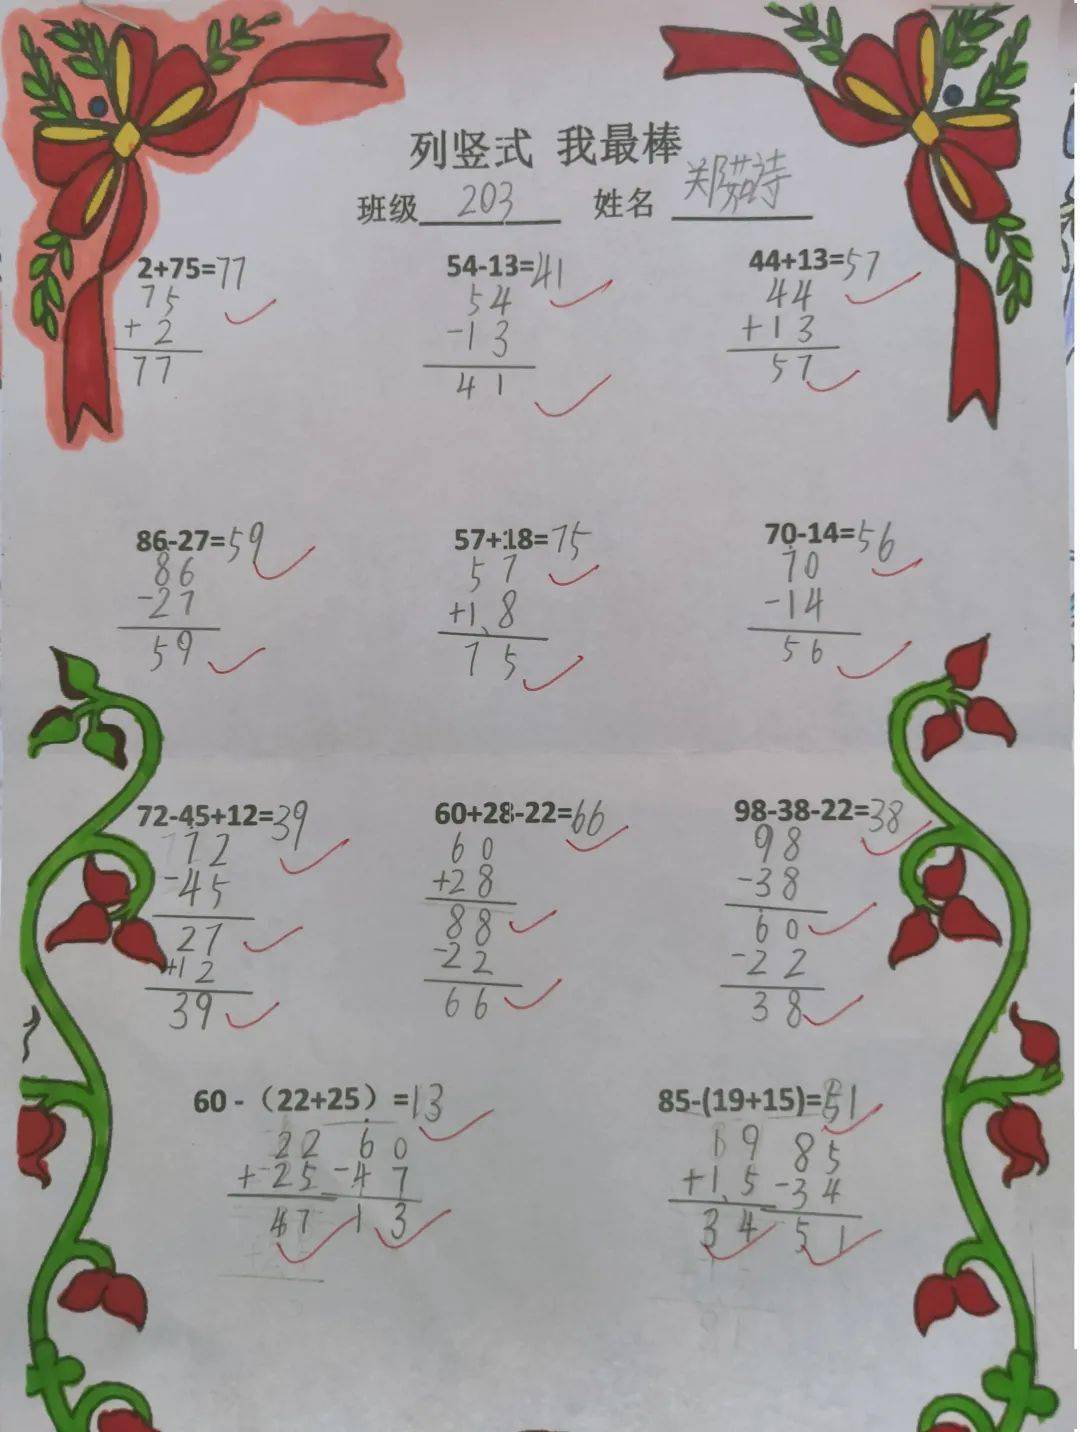 列竖式 我最棒
班级 203 姓名 郑茹诗
2+75=77 54-13=41 44+13=57
75 54 44
+2 -13 +13
77 41 57
86-27=59 57+18=75 70-14=56
86 57 70
-27 +18 -14
59 75 56
72-45+12=39 60+28-22=66 98-38-22=38
72 60 98
-45 +28 -38
27 88 60
+12 -22 -22
39 66 38
60-（22+25）=13 85-(19+15)=51
22 60 19 85
+25 -47 +15 -34
47 13 34 51